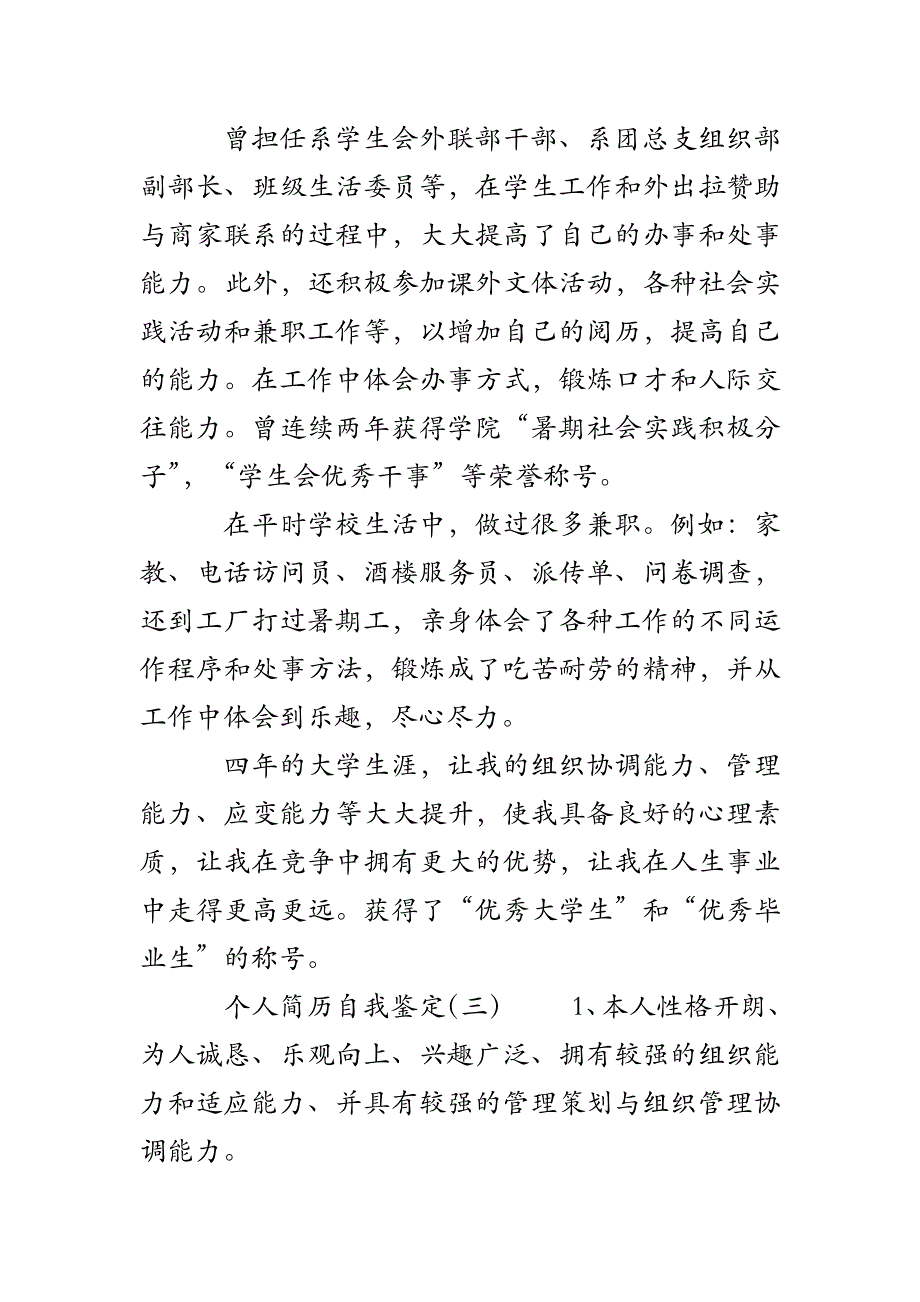 曾担任系学生会外联部干部、系团总支组织部
副部长、班级生活委员等，在学生工作和外出拉赞助
与商家联系的过程中，大大提高了自己的办事和处事
能力。此外，还积极参加课外文体活动，各种社会实
践活动和兼职工作等，以增加自己的阅历，提高自己
的能力。在工作中体会办事方式，锻炼口才和人际交
往能力。曾连续两年获得学院“暑期社会实践积极分
子”，“学生会优秀干事”等荣誉称号。
在平时学校生活中，做过很多兼职。例如：家
教、电话访问员、酒楼服务员、派传单、问卷调查，
还到工厂打过暑期工，亲身体会了各种工作的不同运
作程序和处事方法，锻炼成了吃苦耐劳的精神，并从
工作中体会到乐趣，尽心尽力。
四年的大学生涯，让我的组织协调能力、管理
能力、应变能力等大大提升，使我具备良好的心理素
质，让我在竞争中拥有更大的优势，让我在人生事业
中走得更高更远。获得了“优秀大学生”和“优秀毕
业生”的称号。
个人简历自我鉴定(三) 1、本人性格开朗、
为人诚恳、乐观向上、兴趣广泛、拥有较强的组织能
力和适应能力、并具有较强的管理策划与组织管理协
调能力。